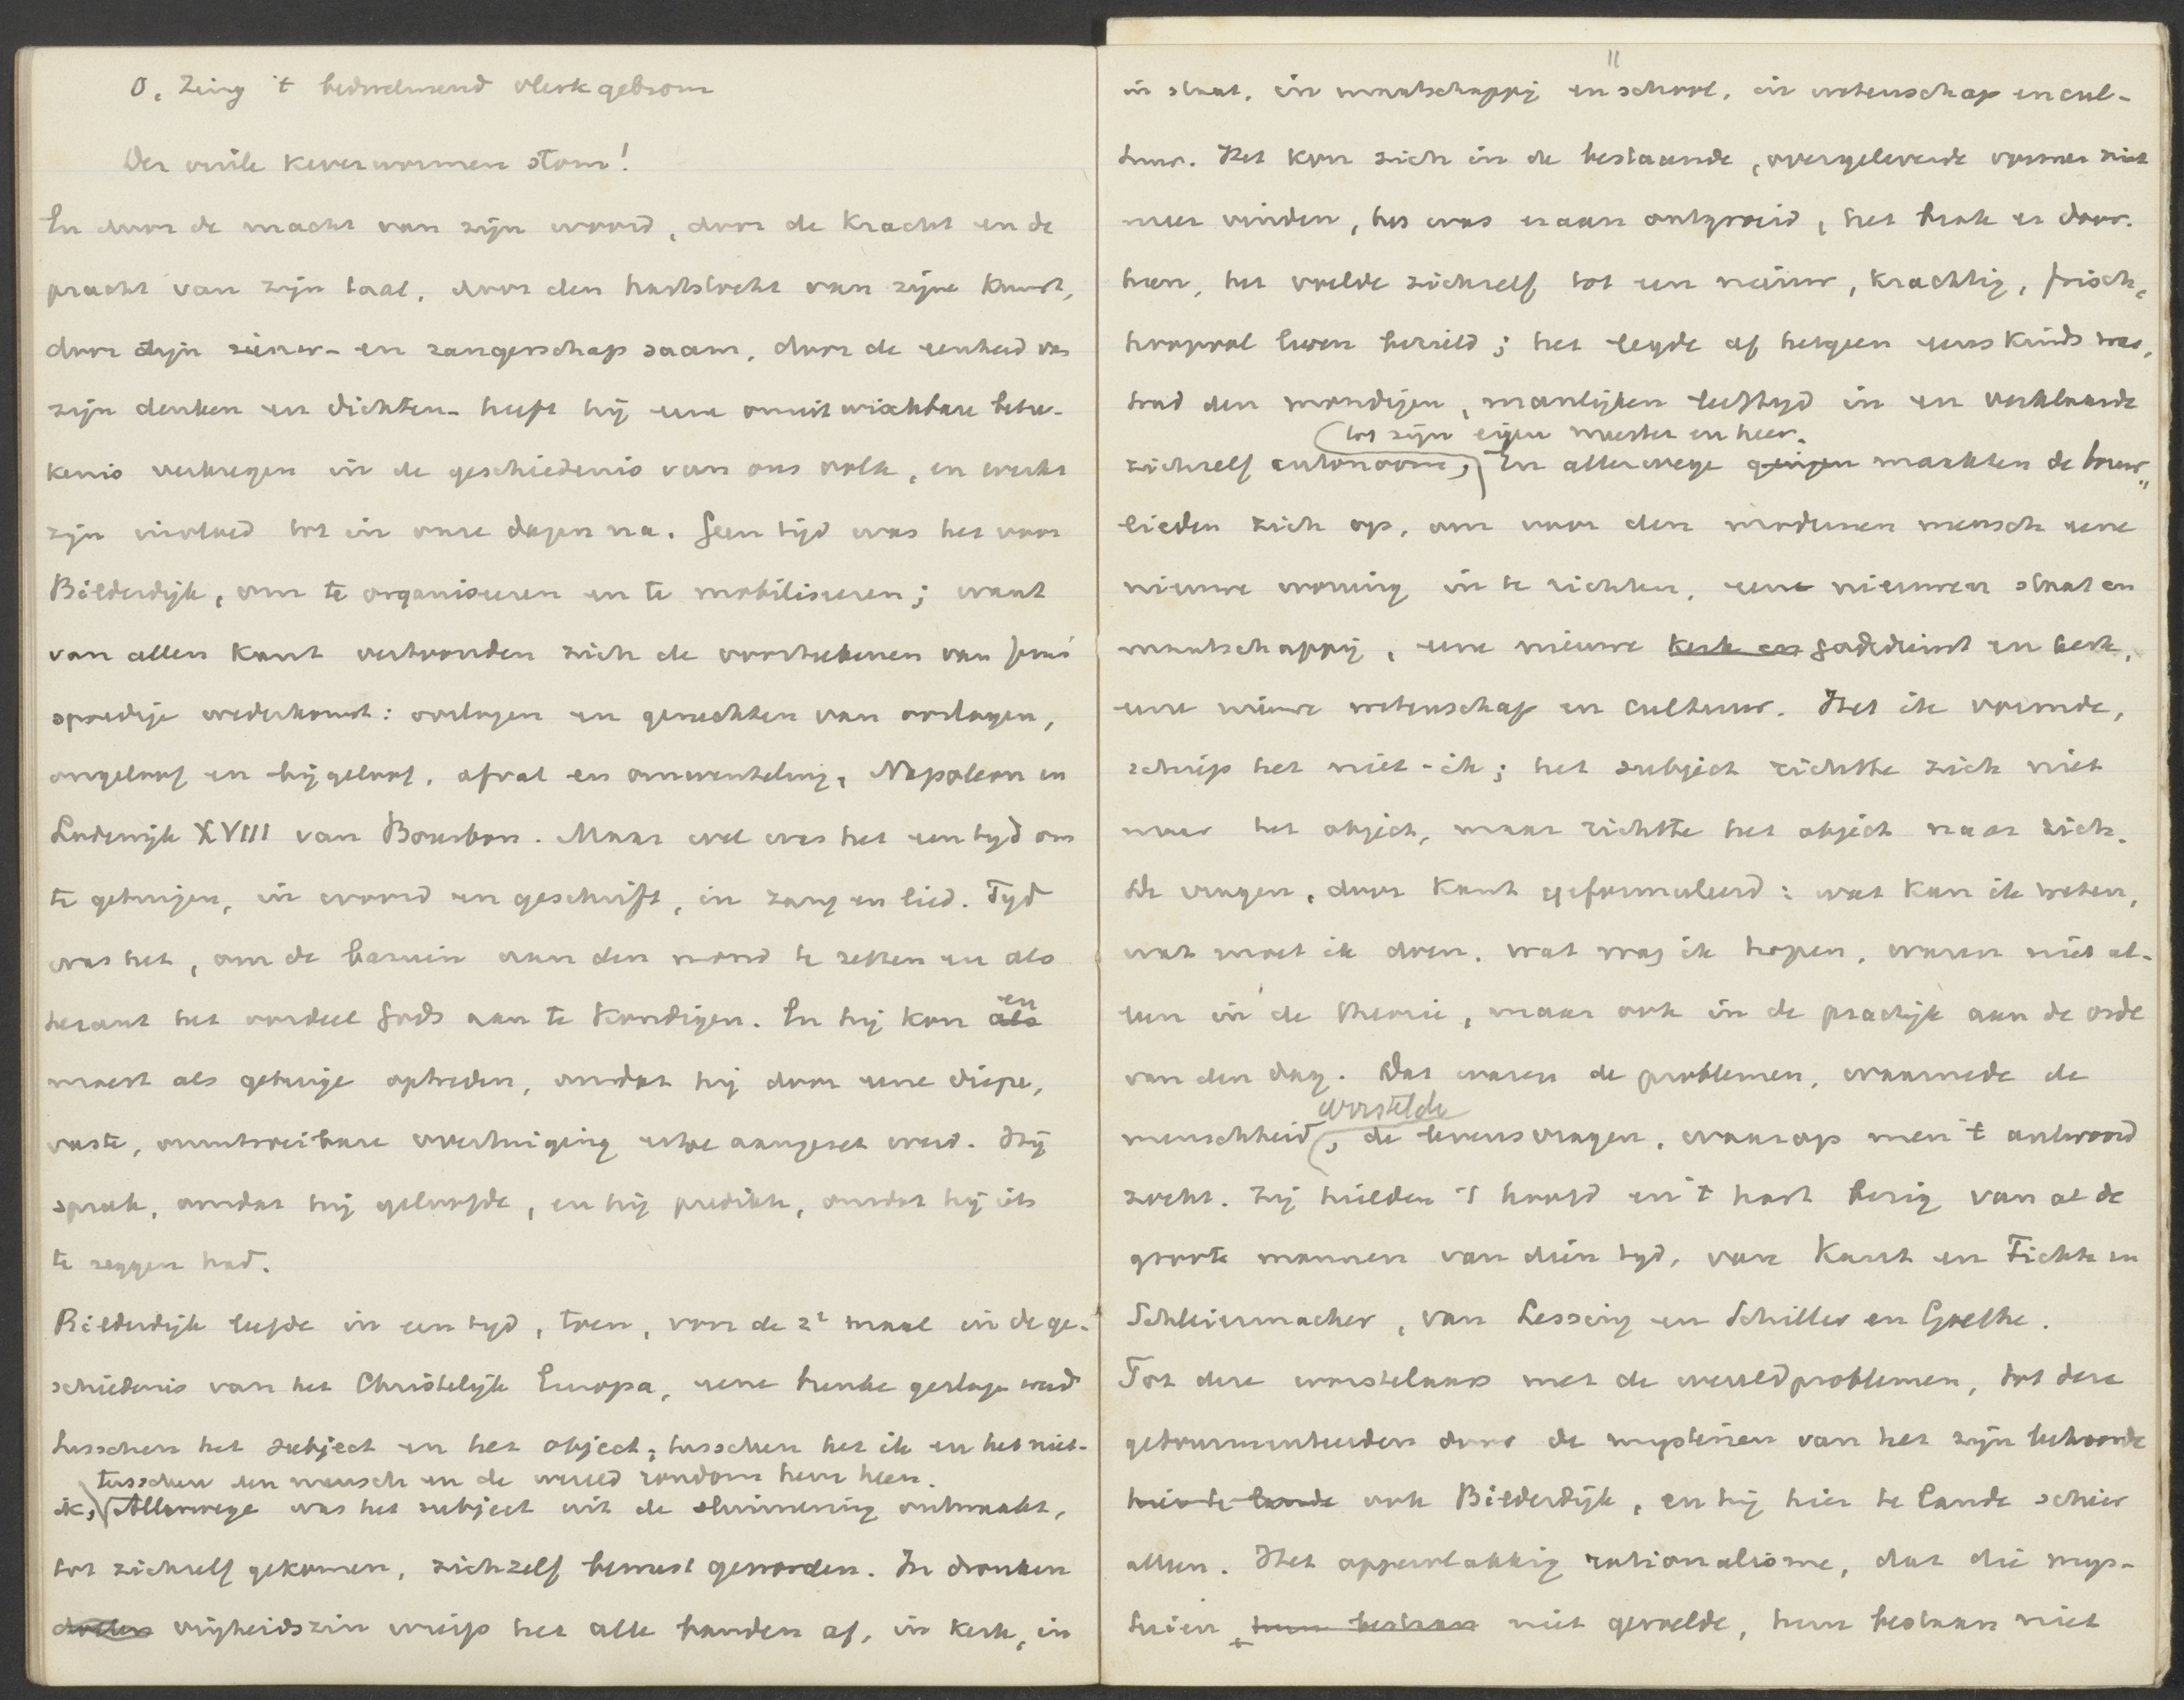 O, zing 't bedwelmend vlerkgebrom
Der vuile keverwormen stom!
En door de macht van zijn woord, door de kracht en de
pracht van zijn taal, door den hartstocht van zijne kunst,
door zijn ziener- en zangerschap saam, door de eenheid van
zijn denken en dichten heeft hij eene onuitwischbare betee-
kenis verkregen in de geschiedenis van ons volk, en werkt
zijn invloed tot in onze dagen na. Geen tijd was het voor
Bilderdijk, om te organiseeren en te mobiliseeren; want
van allen kant vertoonden zich de voorteekenen van Jezus'
spoedige wederkomst: oorlogen en geruchten van oorlogen,
ongeloof en bijgeloof, afval en omwenteling, Napoleon en
Lodewijk XVIII van Bourbon. Maar wel was het een tijd om
te getuigen, in woord en geschrift, in zang en lied. Tijd
was het, om de bazuin aan den mond te zetten en als
heraut het oordeel Gods aan te kondigen. En hij kon ~~als~~ en
moest als getuige optreden, omdat hij door eene diepe,
vaste, onuitroeibare overtuiging ertoe aangezet werd. Hij
sprak, omdat hij geloofde, en hij predikte, omdat hij iets
te zeggen had.
Bilderdijk leefde in een tijd, toen, voor de 2e maal in de ge-
schiedenis van het Christelijk Europa, eene breuke geslagen werd
tusschen het subject en het object, tusschen het ik en het niet-
tusschen een mensch en de wereld rondom hem heen.
ik, Allerwege was het subject uit de sluimering ontwaakt,
tot zichzelf gekomen, zichzelf bewust geworden. In dronken
~~dollen~~ vrijheidszin wierp het alle banden af, in kerk, in
11
in staat, in maatschappij en school, in wetenschap en cul-
tuur. Het kon zich in de bestaande, overgeleverde vormen niet
meer vinden, het was eraan ontgroeid, het brak er door-
heen, het voelde zichzelf tot een nieuw, krachtig, frisch,
hoopvol leven bezield; het legde af hetgeen eens kinds was,
trad den mondigen, manlijken leeftijd in en verklaarde
tot zijn eigen meester en heer.
zichzelf autonoom, En allerwege ~~gingen~~ maakten de bouw-
lieden zich op, om voor den modernen mensch eene
nieuwe woning in te richten, eene nieuwen staat en
maatschappij, eene nieuwe ~~kerk en~~ godsdienst en kerk,
eene nieuwe wetenschap en cultuur. Het ik vormde,
schiep het niet-ik; het subject richtte zich niet
naar het object, maar richtte het object naar zich.
De vragen, door Kant geformuleerd: wat kan ik weten,
wat moet ik doen, wat mag ik hopen, waren niet al-
leen in de theorie, maar ook in de practijk aan de orde
van den dag. Dat waren de problemen, waarmede de
worstelde
menschheid, de levensvragen, waarop men 't antwoord
zocht. Zij hielden 't hoofd en 't hart bezig van al de
groote mannen van dien tijd, van Kant en Fichte en
Schleiermacher, van Lessing en Schiller en Goethe.
Tot deze worstelaars met de wereldproblemen, tot deze
getourmenteerden door de mysteriën van het zijn behoorde
~~hier te lande~~ ook Bilderdijk, en hij hier te lande schier
alleen. Het oppervlakkig rationalisme, dat die mys-
teriën ~~hun bestaan~~ niet gevoelde, hun bestaan niet